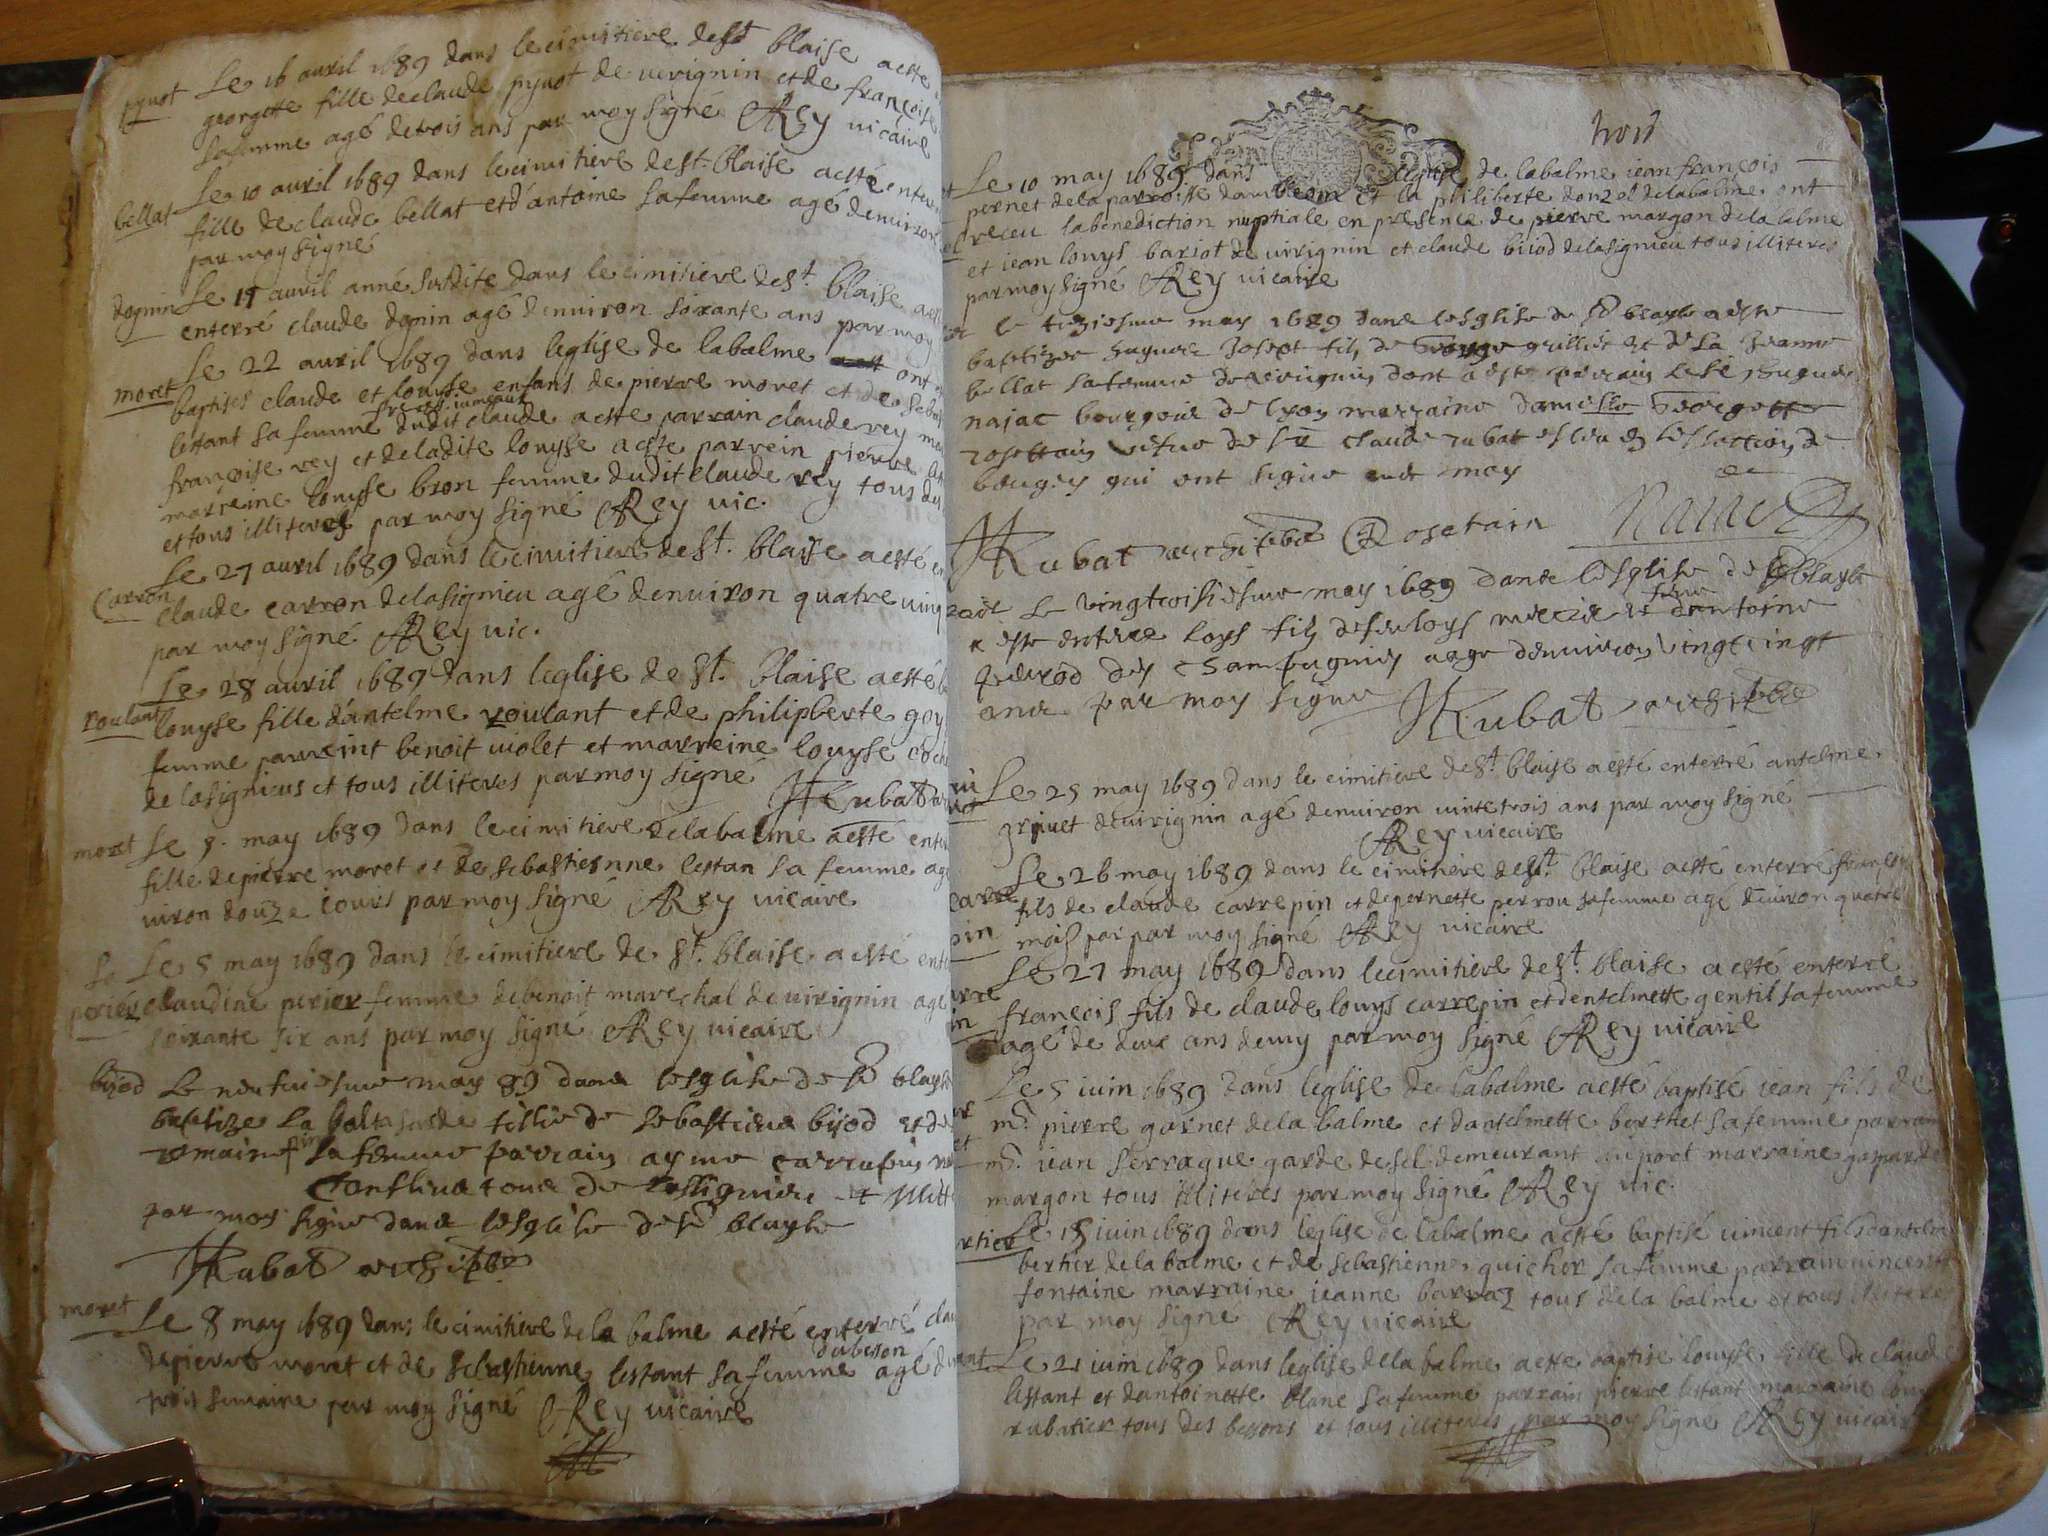 pyuot Le 16 auril 1689 dans le cimitiere de st blaise a esté
georgette fille de claude pyuot de uirignin et de françoise
sa femme agé de trois ans par moy signé Rey uicaire
Le 10 auril 1689 dans le cimitiere de st blaise a esté enterré
bellat fille de claude bellat et d'antoine sa femme agé denuiron
par moy signé
dognin Le 15 auril anné susdite dans le cimitiere de st. blaise a
enterré claude dognin agé denuiron soixante ans par moy
Le 22 auril 1689 dans leglise de labalme ont
moret baptisés claude et louyse enfans de pierre moret et de sebast
frere iumeaux
lestant sa femme dudit claude a esté parrain claude rey
françoise rey et de ladite louyse a esté parrein pierre
marreine louyse bron femme dudit claude rey tous de
et tous illiteres par moy signé Rey uic.
Le 27 auril 1689 dans le cimitiere de st. blaise a esté
Carron claude carron de lasignieu agé denuiron quatre uing
par moy signé Rey uic.
Le 28 auril 1689 dans leglise de st. blaise a esté
roulant louyse fille d'antelme roulant et de philipberte goy
femme parreint benoit uiolet et marreine louyse
de lasignieus et tous illiteres par moy signé Rubat
moret Le 8. may 1689 dans le cimitiere de labalme a esté
fille de pierre moret et de sebastienne lestan sa femme ag
uiron douze iours par moy signé Rey uicaire
Le 5 may 1689 dans le cimitiere de st. blaise a esté
perier claudine perier femme de benoit marechal de uirignin agé
soixante six ans par moy signé Rey uicaire
bijod Le neufuiesme may 89 dans lesglise de st blayse
baptizee la baltasarde fillie de sebastien bijod et de
sa femme parrain ayme carrepin
tous de lassignieu et
par moy signe dans lesglise de st blayse
Rubat archiptre
moret Le 8 may 1689 dans le cimitiere de la balme a esté enterré
du besson
de pierre moret et de sebastienne lestant sa femme agé
trois semaine par moy signé Rey uicaire
trois
Le 10 may 1689 dans leglise de labalme iean françois
pernet de la parroisse dambleon et la philiberte donzel de labalme ont
receu la benediction nuptiale en presence de pierre margon de la balme
et iean louys bariot de uirignin et claude bijod de lasignieu tous illiteres
par moy signé Rey uicaire
le may 1689 dans lesglise de st blayse a este
baptizee Joseph filz de grillier et de La Jeanne
bellat sa femme de virignin dont a este parrain
najac bourgois de lyon marraine damoiselle Georgette
rosettain vefue de sr claude rubat esleu en lesslection de
bougey qui ont signe auec moy
Rubat archiptre Rosetain Naiac
Le vingtroisiesme may 1689 dans lesglise de st blayse
a este enterre loys filz de feu loys mercier et d'antoine
des champagnes aage denuiron vingt cinqt
ans par moy signe Rubat archiptre
Le 25 may 1689 dans le cimitiere de st. blaise a esté enterré antelme
griuet de uirignin agé denuiron uinte trois ans par moy signé
Rey uicaire
Le 26 may 1689 dans le cimitiere de st. blaise a esté enterré françois
carre fils de claude carrepin et de pernette perrou sa femme agé denuiron quatre
pin mois par par moy signé Rey uicaire
Le 27 may 1689 dans le cimitiere de st. blaise a esté enterré
françois fils de claude louys carrepin et dentelmette gentil sa femme
agé de deux ans demy par moy signé Rey uicaire
Le 5 iuin 1689 dans leglise de labalme a esté baptisé iean fils de
mr. pierre garnet de la balme et dantelmette berthet sa femme parrain
mr. iean serrague garde de sel demeurant au port marraine gasparde
margon tous illiteres par moy signé Rey uic.
Le 15 iuin 1689 dans leglise de labalme a esté baptisé uincent fils dantelme
bertier de la balme et de sebastienne quicher sa femme parrain uincent
fontaine marraine ieanne barraz tous de la balme et tous illiteres
par moy signé Rey uicaire
Le 21 iuin 1689 dans leglise de la balme a esté baptisé louyse fille de claude
lestant et dantoinette blanc sa femme parrain pierre lestant marraine louy
rubatier tous des bessons et tous illiteres par moy signé Rey uicair